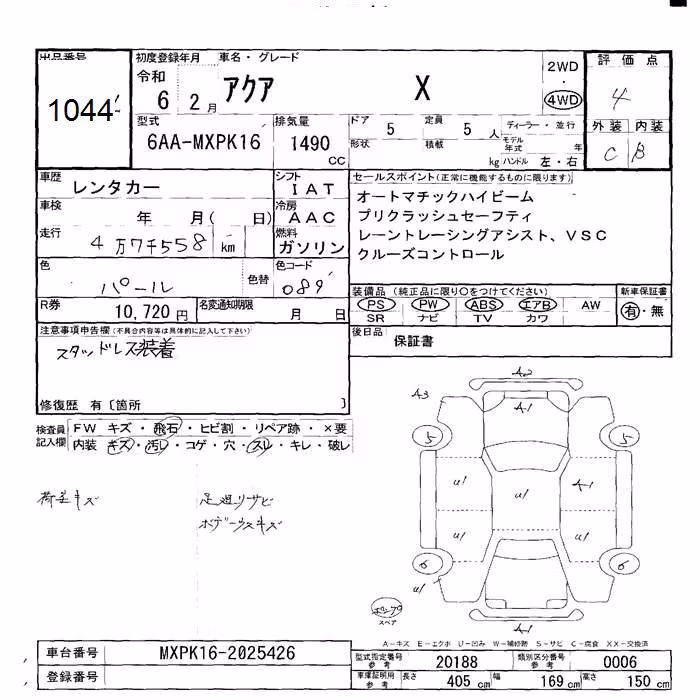 出品番号
1044
初度登録年月 車名・グレード
令和
6 2月 アクア X
2WD
・
4WD
評価点
4
外装 内装
C B
型式
6AA-MXPK16
排気量
1490
CC
ドア 5 定員 5 人 ディーラー・並行
形状 積載 kg モデル年式 年
ハンドル 左・右
車歴
レンタカー
シフト
IAT
車検
年 月( 日)
冷房
AAC
走行
4万7千558 km
燃料
ガソリン
色
パール
色替
色コード
089
R券
10,720円
名変通知期限
月 日
セールスポイント(正常に機能するものに限ります)
オートマチックハイビーム
プリクラッシュセーフティ
レーントレーシングアシスト、VSC
クルーズコントロール
装備品(純正品に限り○をつけてください)
PS PW ABS エアB AW
SR ナビ TV カワ
新車保証書
有・無
後日品
保証書
注意事項申告欄(不具合内容等は具体的に記入して下さい)
スタッドレス装着
修復歴 有〔箇所 〕
検査員記入欄
FW キズ・飛石・ヒビ割・リペア跡・×要
内装 キズ・汚レ・コゲ・穴・スレ・キレ・破レ
荷室キズ
足廻リサビ
A2
A3
A-1
5 5
U1 U1 A-1
U1 U1
6 6
U1
スペア
A-1
A-キズ E-エクボ U-凹み W-補修跡 S-サビ C-腐食 XX-交換済
車台番号
MXPK16-2025426
登録番号
型式指定番号
参考
20188
類別区分番号
参考
0006
車庫証明用
参考
長さ 405 cm 幅 169 cm 高さ 150 cm